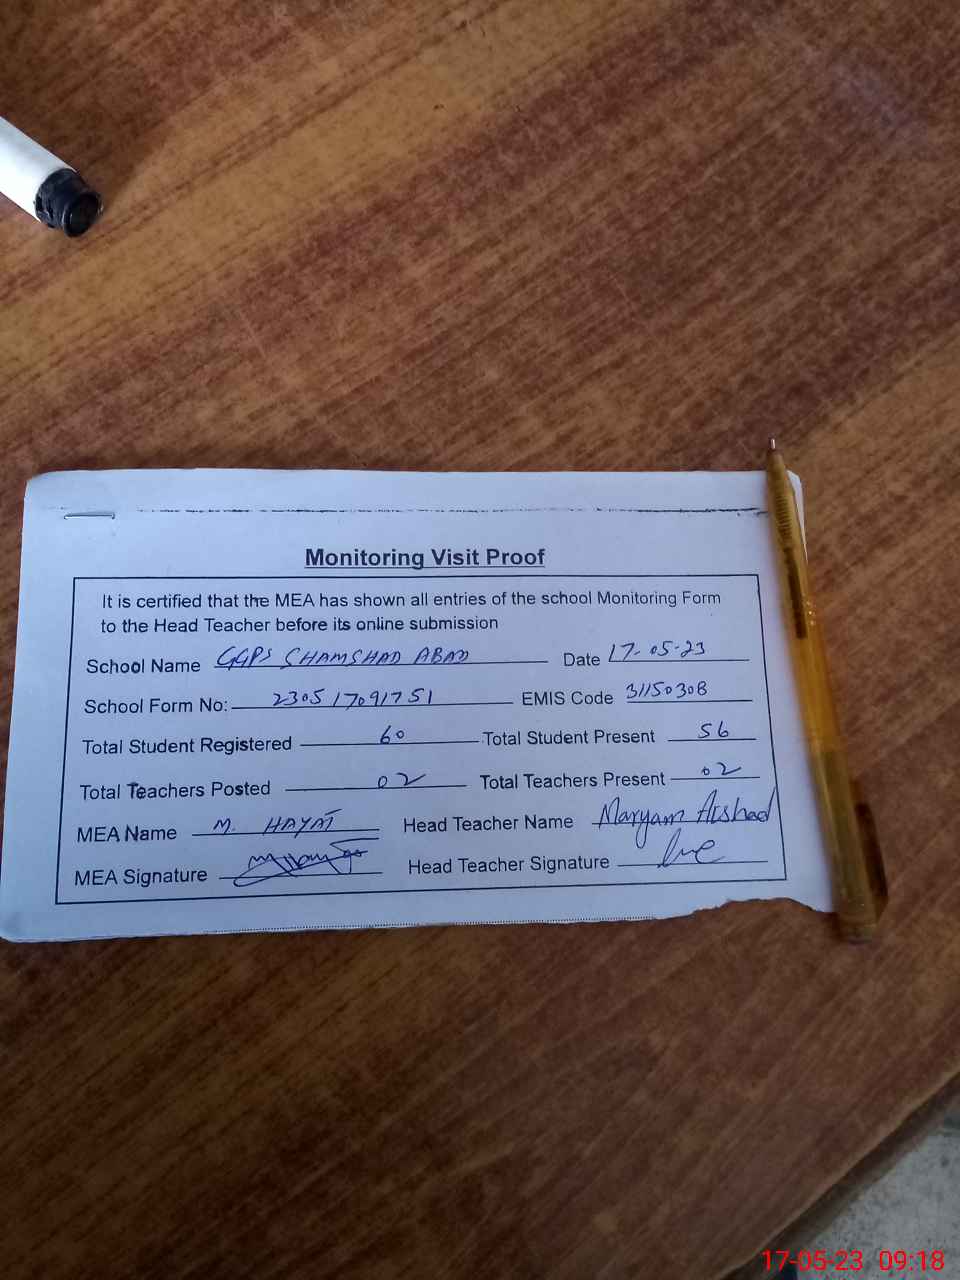 Monitoring Visit Proof
It is certified that the MEA has shown all entries of the school Monitoring Form
to the Head Teacher before its online submission
School Name GGPS SHAMSHAD ABAD Date 17-05-23
School Form No: 230517091751 EMIS Code 31150308
Total Student Registered 60 Total Student Present 56
Total Teachers Posted 02 Total Teachers Present 02
MEA Name M. HAYAT Head Teacher Name Maryam Arshad
MEA Signature Head Teacher Signature
17-05-23 09:18